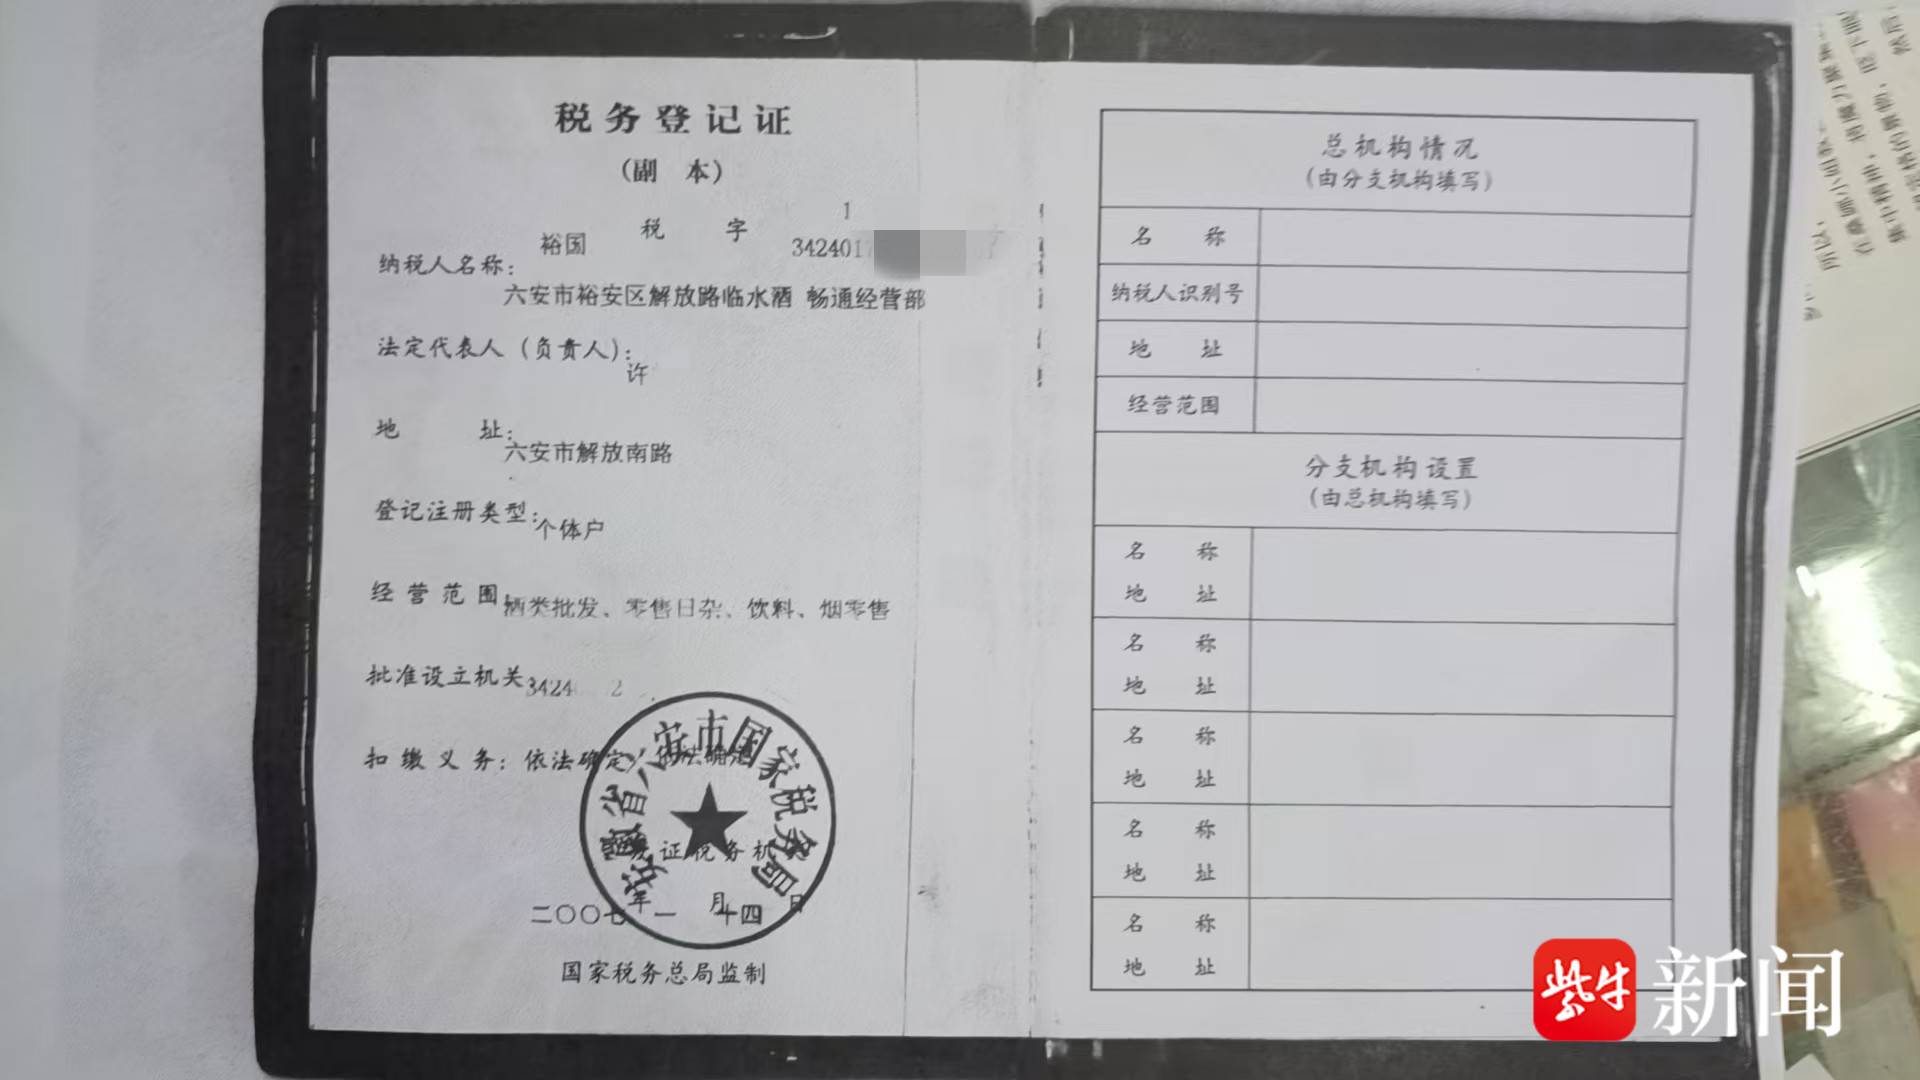 税务登记证
(副 本)
裕国 税 字 3424017
1
纳税人名称:
六安市裕安区解放路临水酒 畅通经营部
法定代表人(负责人):
许
地 址:
六安市解放南路
登记注册类型:
个体户
经营范围:
酒类批发、零售日杂、饮料、烟零售
批准设立机关
3424 2
扣缴义务:依法确定
依法确定
安徽省六安市国家税务局
发证税务机关
二〇〇七年一月十四日
国家税务总局监制
总机构情况
(由分支机构填写)
名 称
纳税人识别号
地 址
经营范围
分支机构设置
(由总机构填写)
名 称
地 址
名 称
地 址
名 称
地 址
名 称
地 址
名 称
地 址
紫牛 新闻